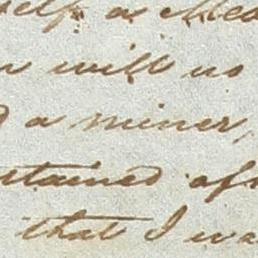 self a Mea
will no
a miner,
tained af
that I wa